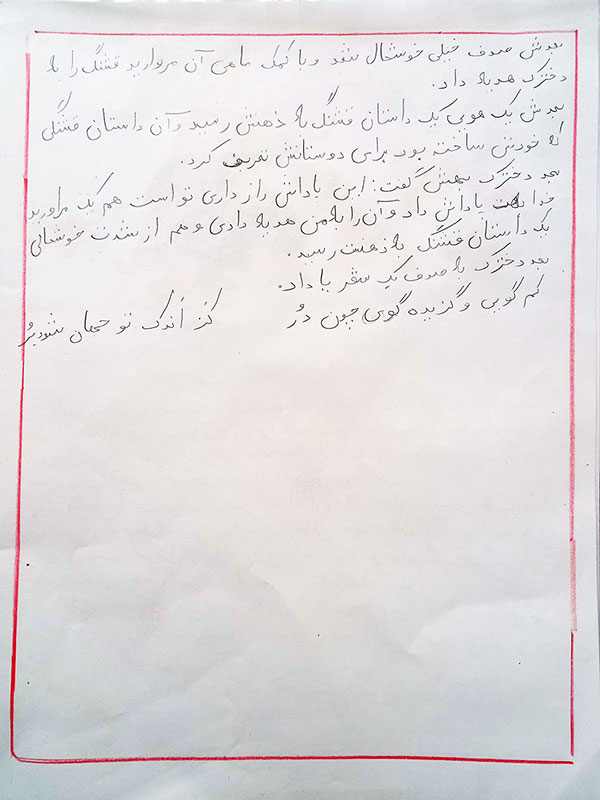 بعدش صدف خیلی خوشحال شد و با کمک ماهی آن مروارید قشنگ را به
دخترک هدیه داد.
بعدش یک هویی یک داستان قشنگ به ذهنش رسید و آن داستان قشنگی
که خودش ساخته بود برای دوستانش تعریف کرد.
بعد دخترک بهش گفت: این پاداش راز داری تو است هم یک مراورید
خدا بهت پاداش داد و آن را به من هدیه دادی و هم از شدت خوشحالی
یک داستان قشنگ به ذهنت رسید.
بعد دخترک به صدف یک شعر یاد داد.
کم گویی و گزیده گویی چون دُر کَز اَندک تو جهان شود پُر